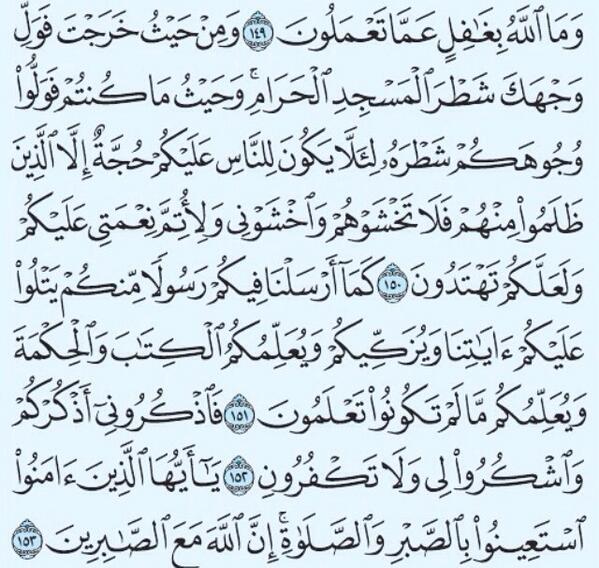 وَمَا ٱللَّهُ بِغَٰفِلٍ عَمَّا تَعۡمَلُونَ ١٤٩ وَمِنۡ حَيۡثُ خَرَجۡتَ فَوَلِّ
وَجۡهَكَ شَطۡرَ ٱلۡمَسۡجِدِ ٱلۡحَرَامِۚ وَحَيۡثُ مَا كُنتُمۡ فَوَلُّواْ
وُجُوهَكُمۡ شَطۡرَهُۥ لِئَلَّا يَكُونَ لِلنَّاسِ عَلَيۡكُمۡ حُجَّةٌ إِلَّا ٱلَّذِينَ
ظَلَمُواْ مِنۡهُمۡ فَلَا تَخۡشَوۡهُمۡ وَٱخۡشَوۡنِي وَلِأُتِمَّ نِعۡمَتِي عَلَيۡكُمۡ
وَلَعَلَّكُمۡ تَهۡتَدُونَ ١٥٠ كَمَآ أَرۡسَلۡنَا فِيكُمۡ رَسُولٗا مِّنكُمۡ يَتۡلُواْ
عَلَيۡكُمۡ ءَايَٰتِنَا وَيُزَكِّيكُمۡ وَيُعَلِّمُكُمُ ٱلۡكِتَٰبَ وَٱلۡحِكۡمَةَ
وَيُعَلِّمُكُم مَّا لَمۡ تَكُونُواْ تَعۡلَمُونَ ١٥١ فَٱذۡكُرُونِيٓ أَذۡكُرۡكُمۡ
وَٱشۡكُرُواْ لِي وَلَا تَكۡفُرُونِ ١٥٢ يَٰٓأَيُّهَا ٱلَّذِينَ ءَامَنُواْ
ٱسۡتَعِينُواْ بِٱلصَّبۡرِ وَٱلصَّلَوٰةِۚ إِنَّ ٱللَّهَ مَعَ ٱلصَّٰبِرِينَ ١٥٣